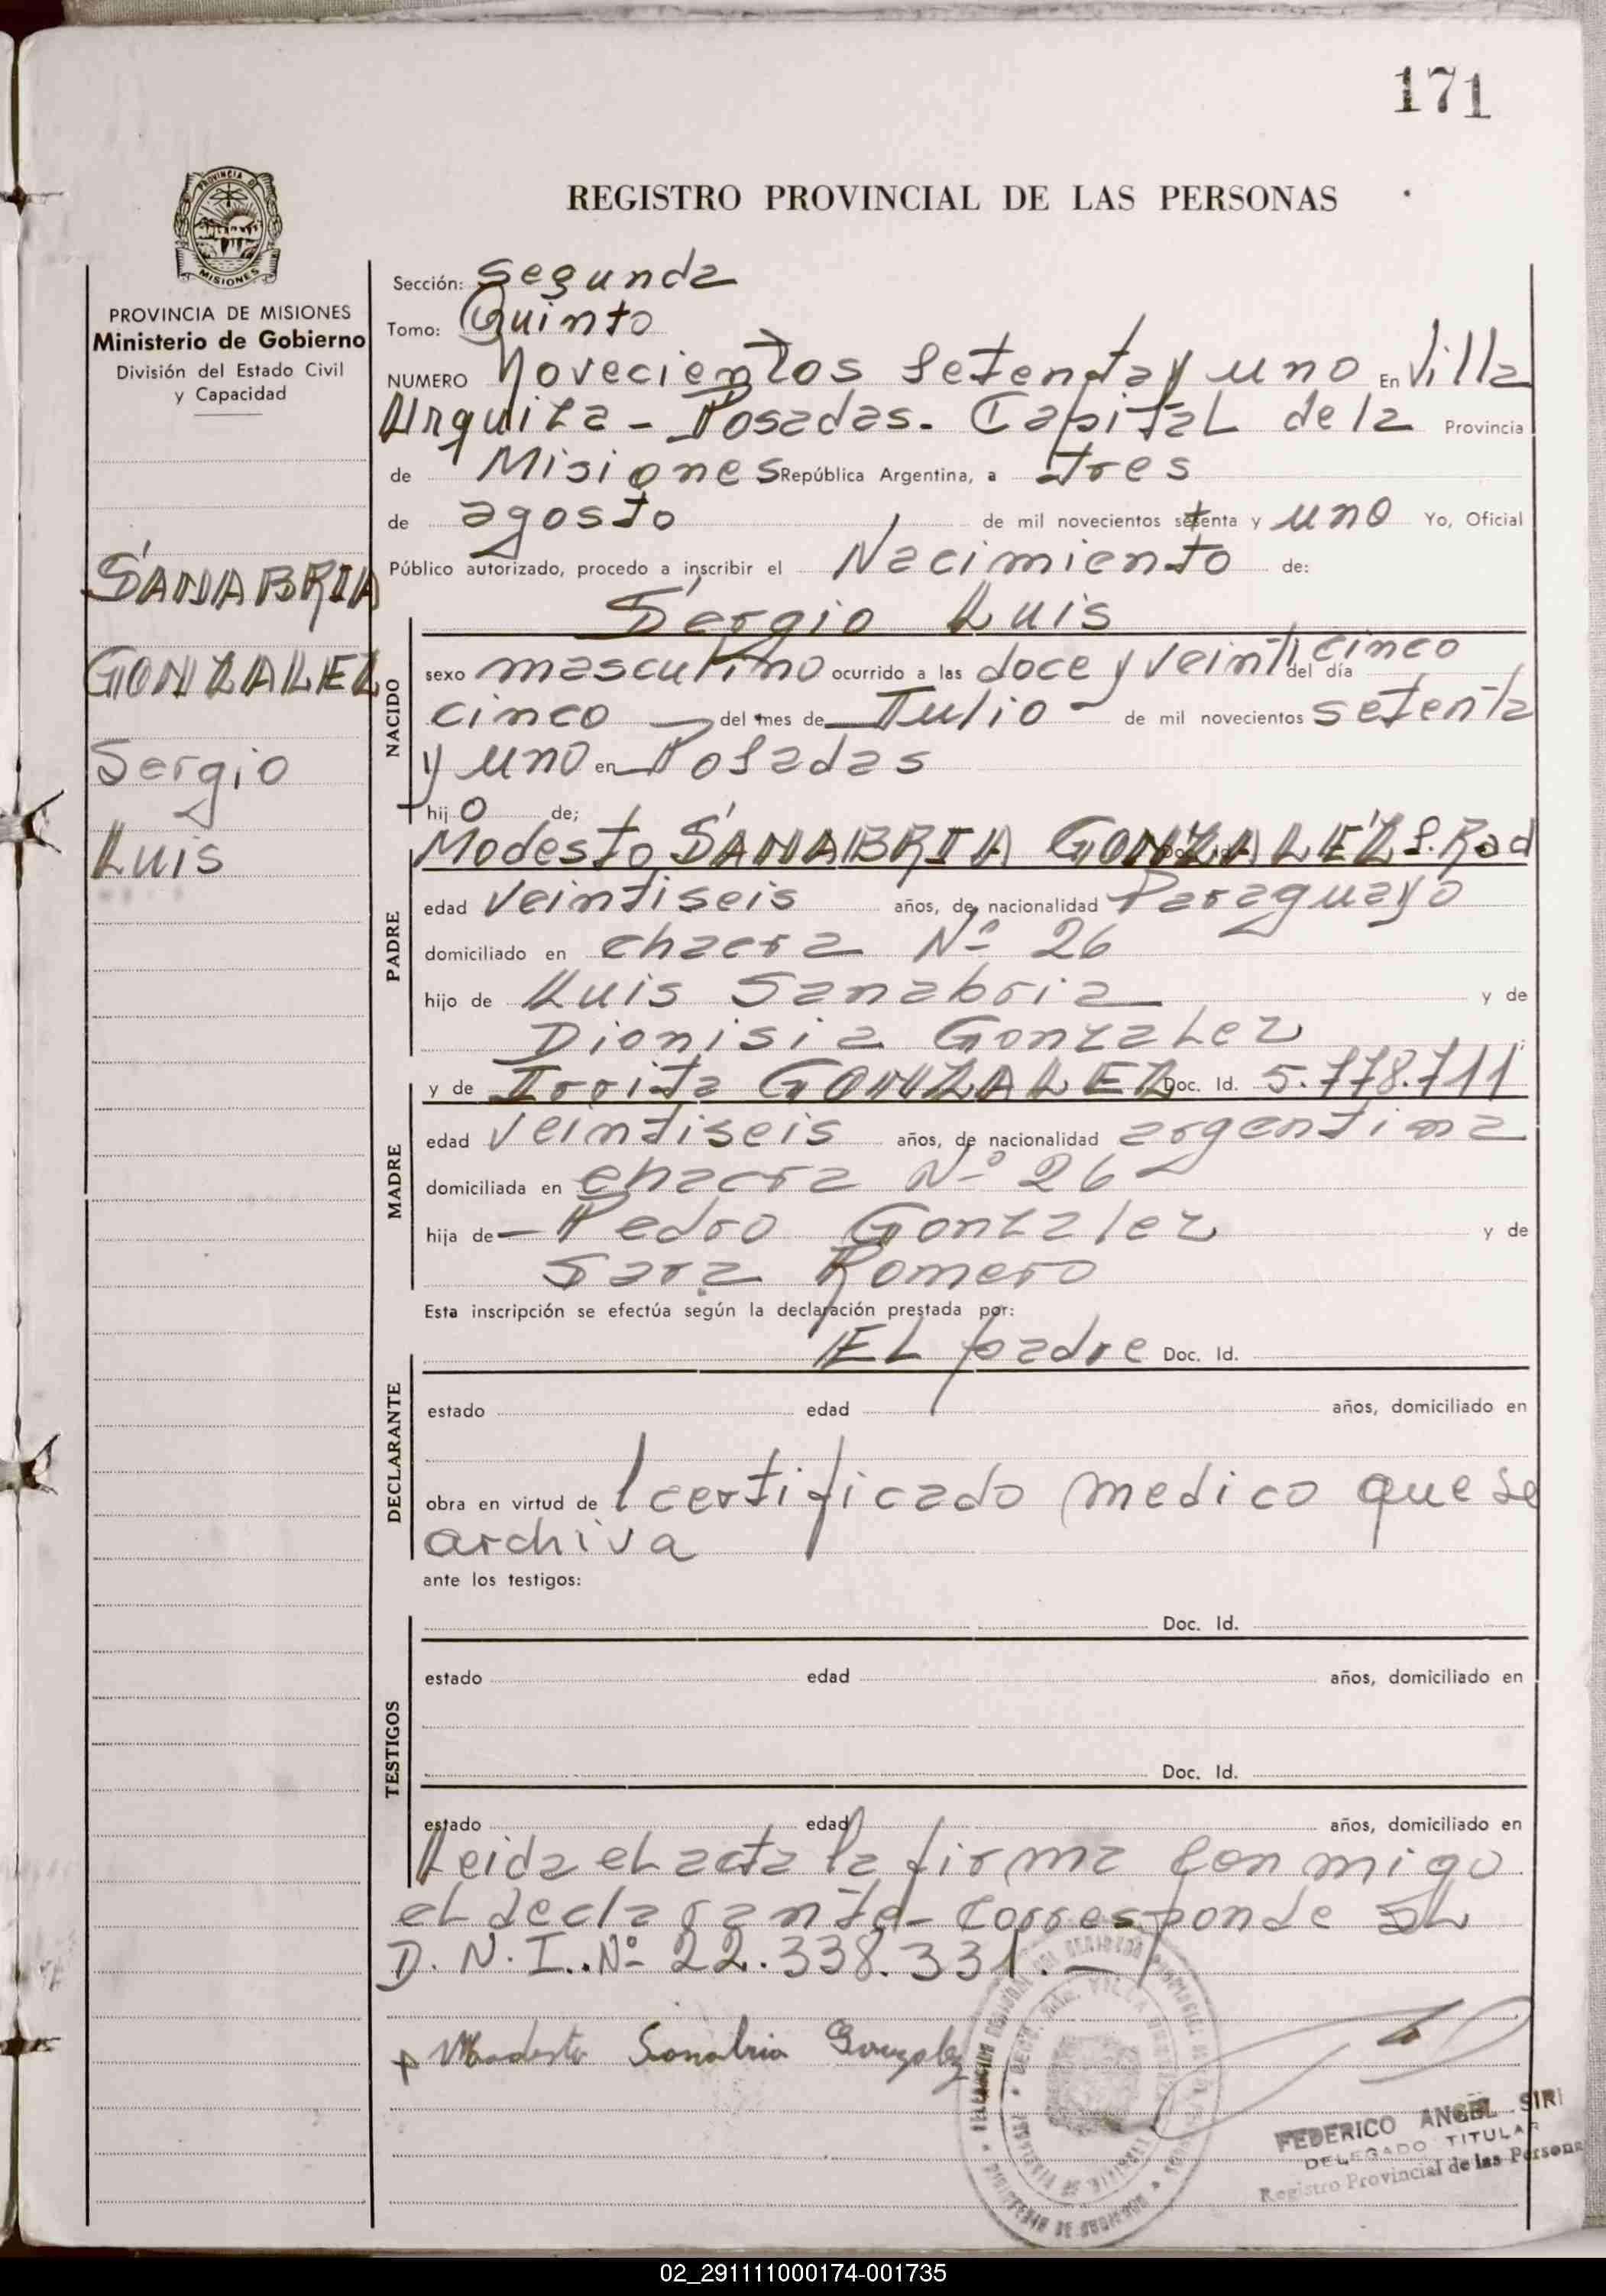 171
REGISTRO PROVINCIAL DE LAS PERSONAS
PROVINCIA DE
MISIONES
PROVINCIA DE MISIONES
Ministerio de Gobierno
División del Estado Civil
y Capacidad
SANABRIA
GONZALEZ
Sergio
Luis
Sección: Segunda
Tomo: Quinto
NUMERO Novecientos setenta y uno En Villa
Urquiza - Posadas. Capital de la Provincia
de Misiones República Argentina, a tres
de agosto de mil novecientos setenta y uno Yo, Oficial
Público autorizado, procedo a inscribir el Nacimiento de:
Sergio Luis
NACIDO
sexo masculino ocurrido a las doce y veinticinco del día
cinco del mes de Julio de mil novecientos setenta
y uno en Posadas
hijo de;
PADRE
Modesto SANABRIA GONZALEZ S. Rad
edad veintiseis años, de nacionalidad Paraguayo
domiciliado en chacra Nº 26
hijo de Luis Sanabria y de
Dionisia Gonzalez
MADRE
y de Irrita GONZALEZ Doc. Id. 5.778.711
edad veintiseis años, de nacionalidad argentina
domiciliada en chacra Nº 26
hija de - Pedro Gonzalez y de
Sara Romero
Esta inscripción se efectúa según la declaración prestada por:
DECLARANTE
EL padre Doc. Id.
estado edad años, domiciliado en
obra en virtud del certificado medico que se
archiva
ante los testigos:
TESTIGOS
Doc. Id.
estado edad años, domiciliado en
Doc. Id.
estado edad años, domiciliado en
Leida el acta la firma conmigo
el declarante - corresponde al
D. N. I. Nº 22.338.331. -
x Modesto Sanabria Gonzalez
FEDERICO ANGEL SIRI
DELEGADO TITULAR
Registro Provincial de las Persona
02_291111000174-001735